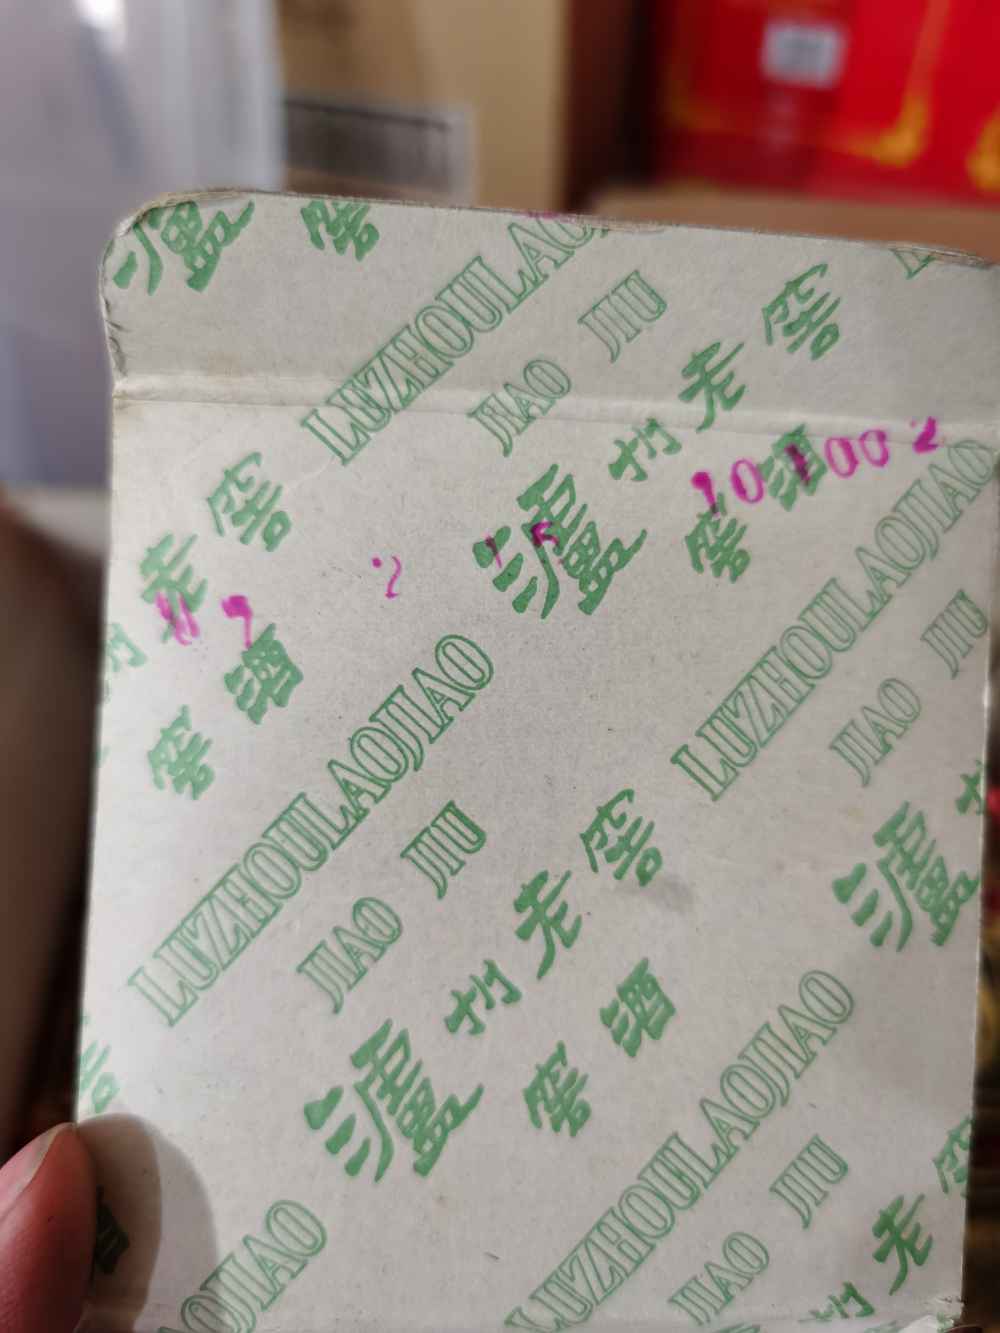 瀘 窖
LUZHOULAO
JIAO JIU
瀘州老窖
窖酒
老窖
窖酒
101002
07 2 15
LUZHOULAOJIAO
JIAO JIU
LUZHOULAOJIAO
JIAO JIU
瀘州老窖
窖酒
瀘
LUZHOULAOJIAO
JIAO JIU
OJIAO
州老